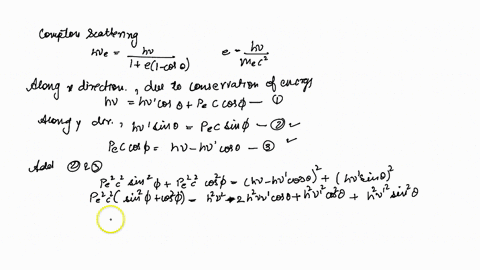 Compton Scattering
hν_e = hν / (1 + e(1-cosθ))    e = hν / (m_e c²)
Along x direction, due to conservation of energy
hν = hν' cosθ + P_e c cosϕ — ①
Along y dir, hν' sinθ = P_e c sinϕ — ② ✓
P_e c cosϕ = hν - hν' cosθ — ③ ✓
Add ② & ③
P_e² c² sin²ϕ + P_e² c² cos²ϕ = (hν - hν' cosθ)² + (hν' sinθ)²
P_e² c² (sin²ϕ + cos²ϕ) = h²ν² - 2h²νν' cosθ + h²ν'² cos²θ + h²ν'² sin²θ